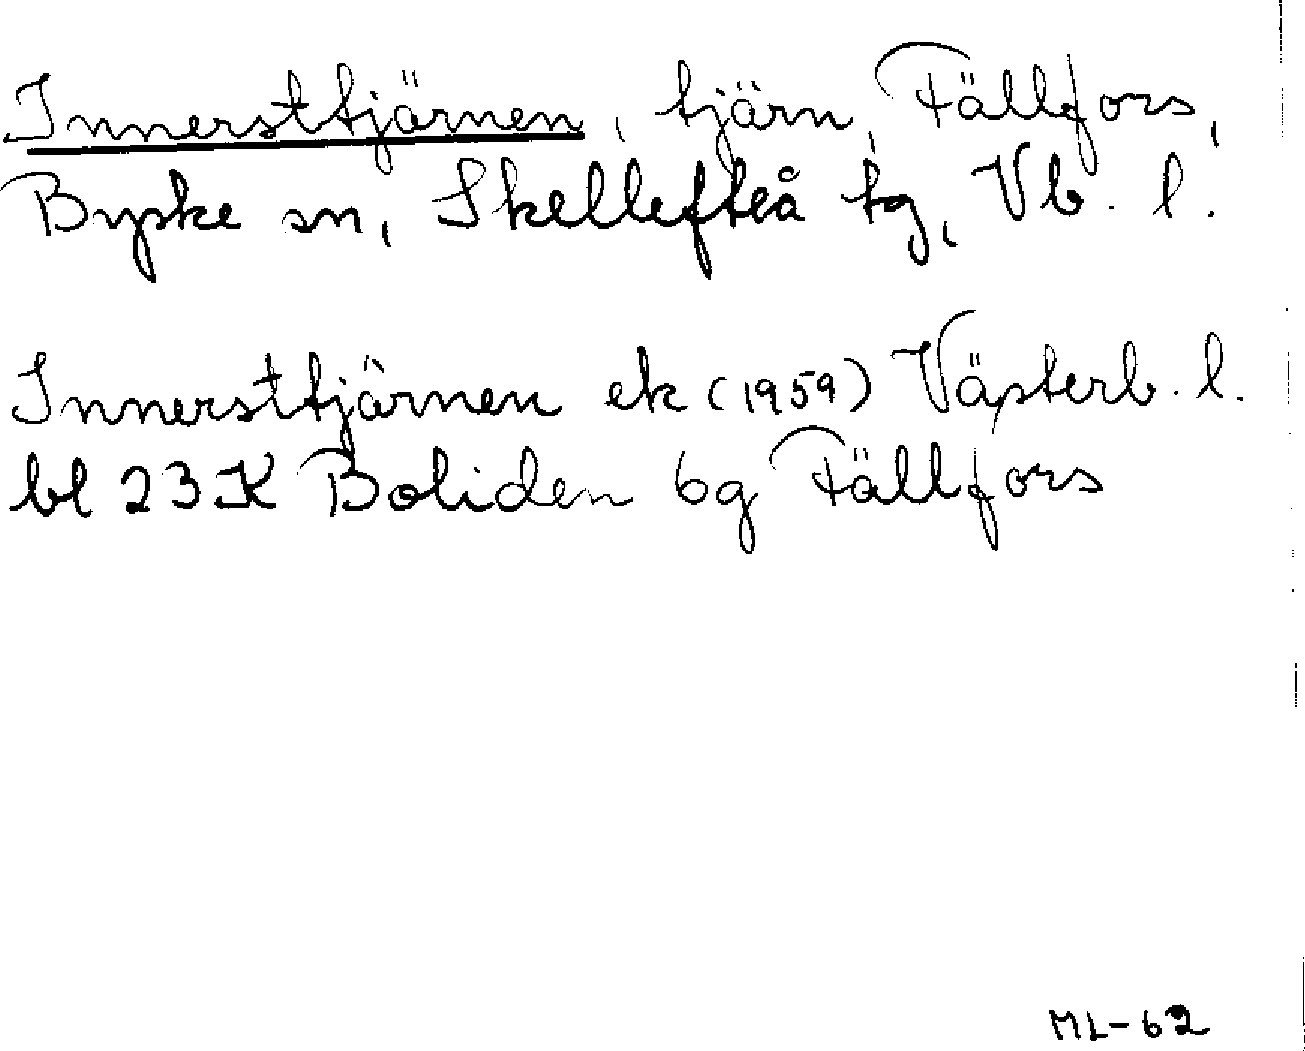 Innersttjärnen, tjärn, Fällfors,
Byske sn, Skellefteå tg, Vb. l.
Innersttjärnen ek (1959) Västerb. l.
bl 23 K Boliden 6g Fällfors
ML-62